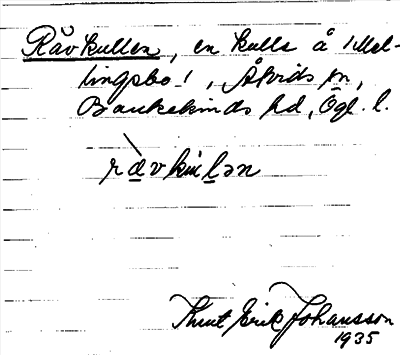 Rävkullen, en kulle å 1 Mel-
lingsbo 1, Åtvids sn,
Bankekinds hd, Ögl. l.
rävkulən
Knut Erik Johansson
1935